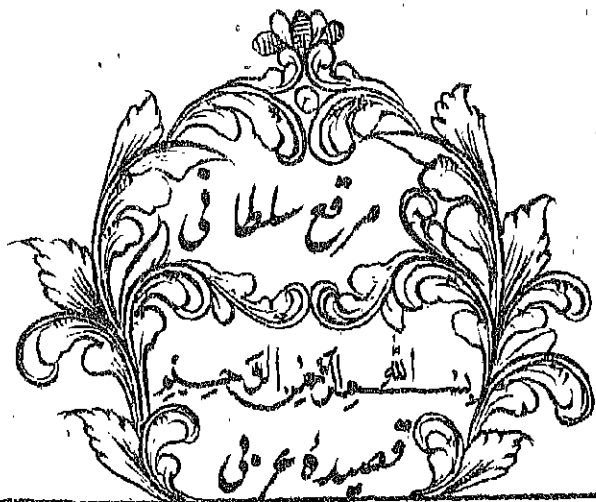 مرقع سلطانی
بسم الله الرحمن الرحیم
قصیدهٔ عربی